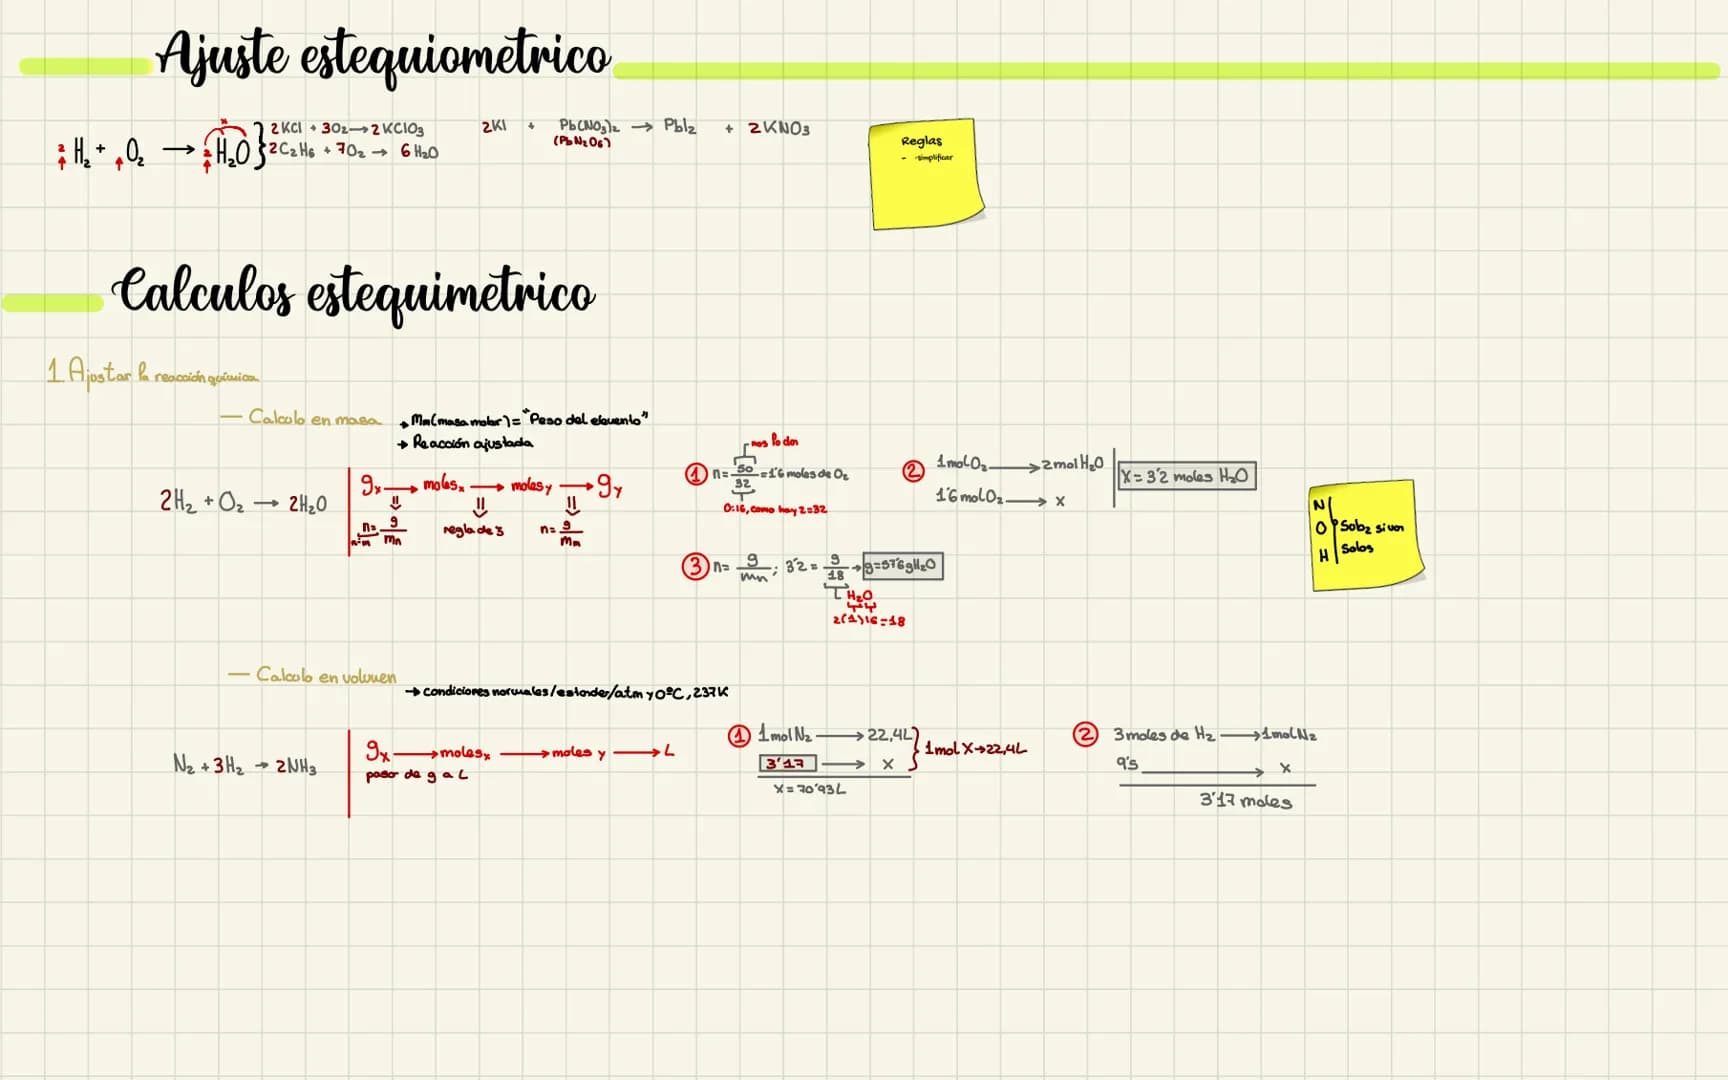 Ajuste estequiometrico
2 H₂ + 1 O₂ → 2 H₂O
2KCl + 3O₂ → 2KClO₃
2C₂H₆ + 7O₂ → 6H₂O
2KI + Pb(NO₃)₂ → PbI₂ + 2KNO₃
(PbN₂O₆)
Reglas
- -simplificar
Calculos estequimetrico
1 Ajustar la reacción química
— Calculo en masa
→ Mm(masa molar) = "Peso del elemento"
→ Reacción ajustada
2H₂ + O₂ → 2H₂O
gx → molesx → moles y → gy
n= g/mn
regla de 3
n= g/Mm
① n= 50/32 = 1'6 moles de O₂
nos lo dan
O:16, como hay 2=32
② 1mol O₂ → 2mol H₂O
1'6 mol O₂ → x
X = 3'2 moles H₂O
③ n= g/mn ; 3'2 = g/18 → g=57'6g H₂O
H₂O
2(1)16=18
N
O
H
Sob₂ si van
Solos
— Calculo en volumen
→ condiciones normales/estander/atm y 0ºC, 237K
N₂ + 3H₂ → 2NH₃
gx → molesx → moles y → L
pasar de g a L
① 1mol N₂ → 22,4L
3'17 → x
X = 70'93L
1mol X → 22,4L
② 3 moles de H₂ → 1mol N₂
9'5 → x
3'17 moles